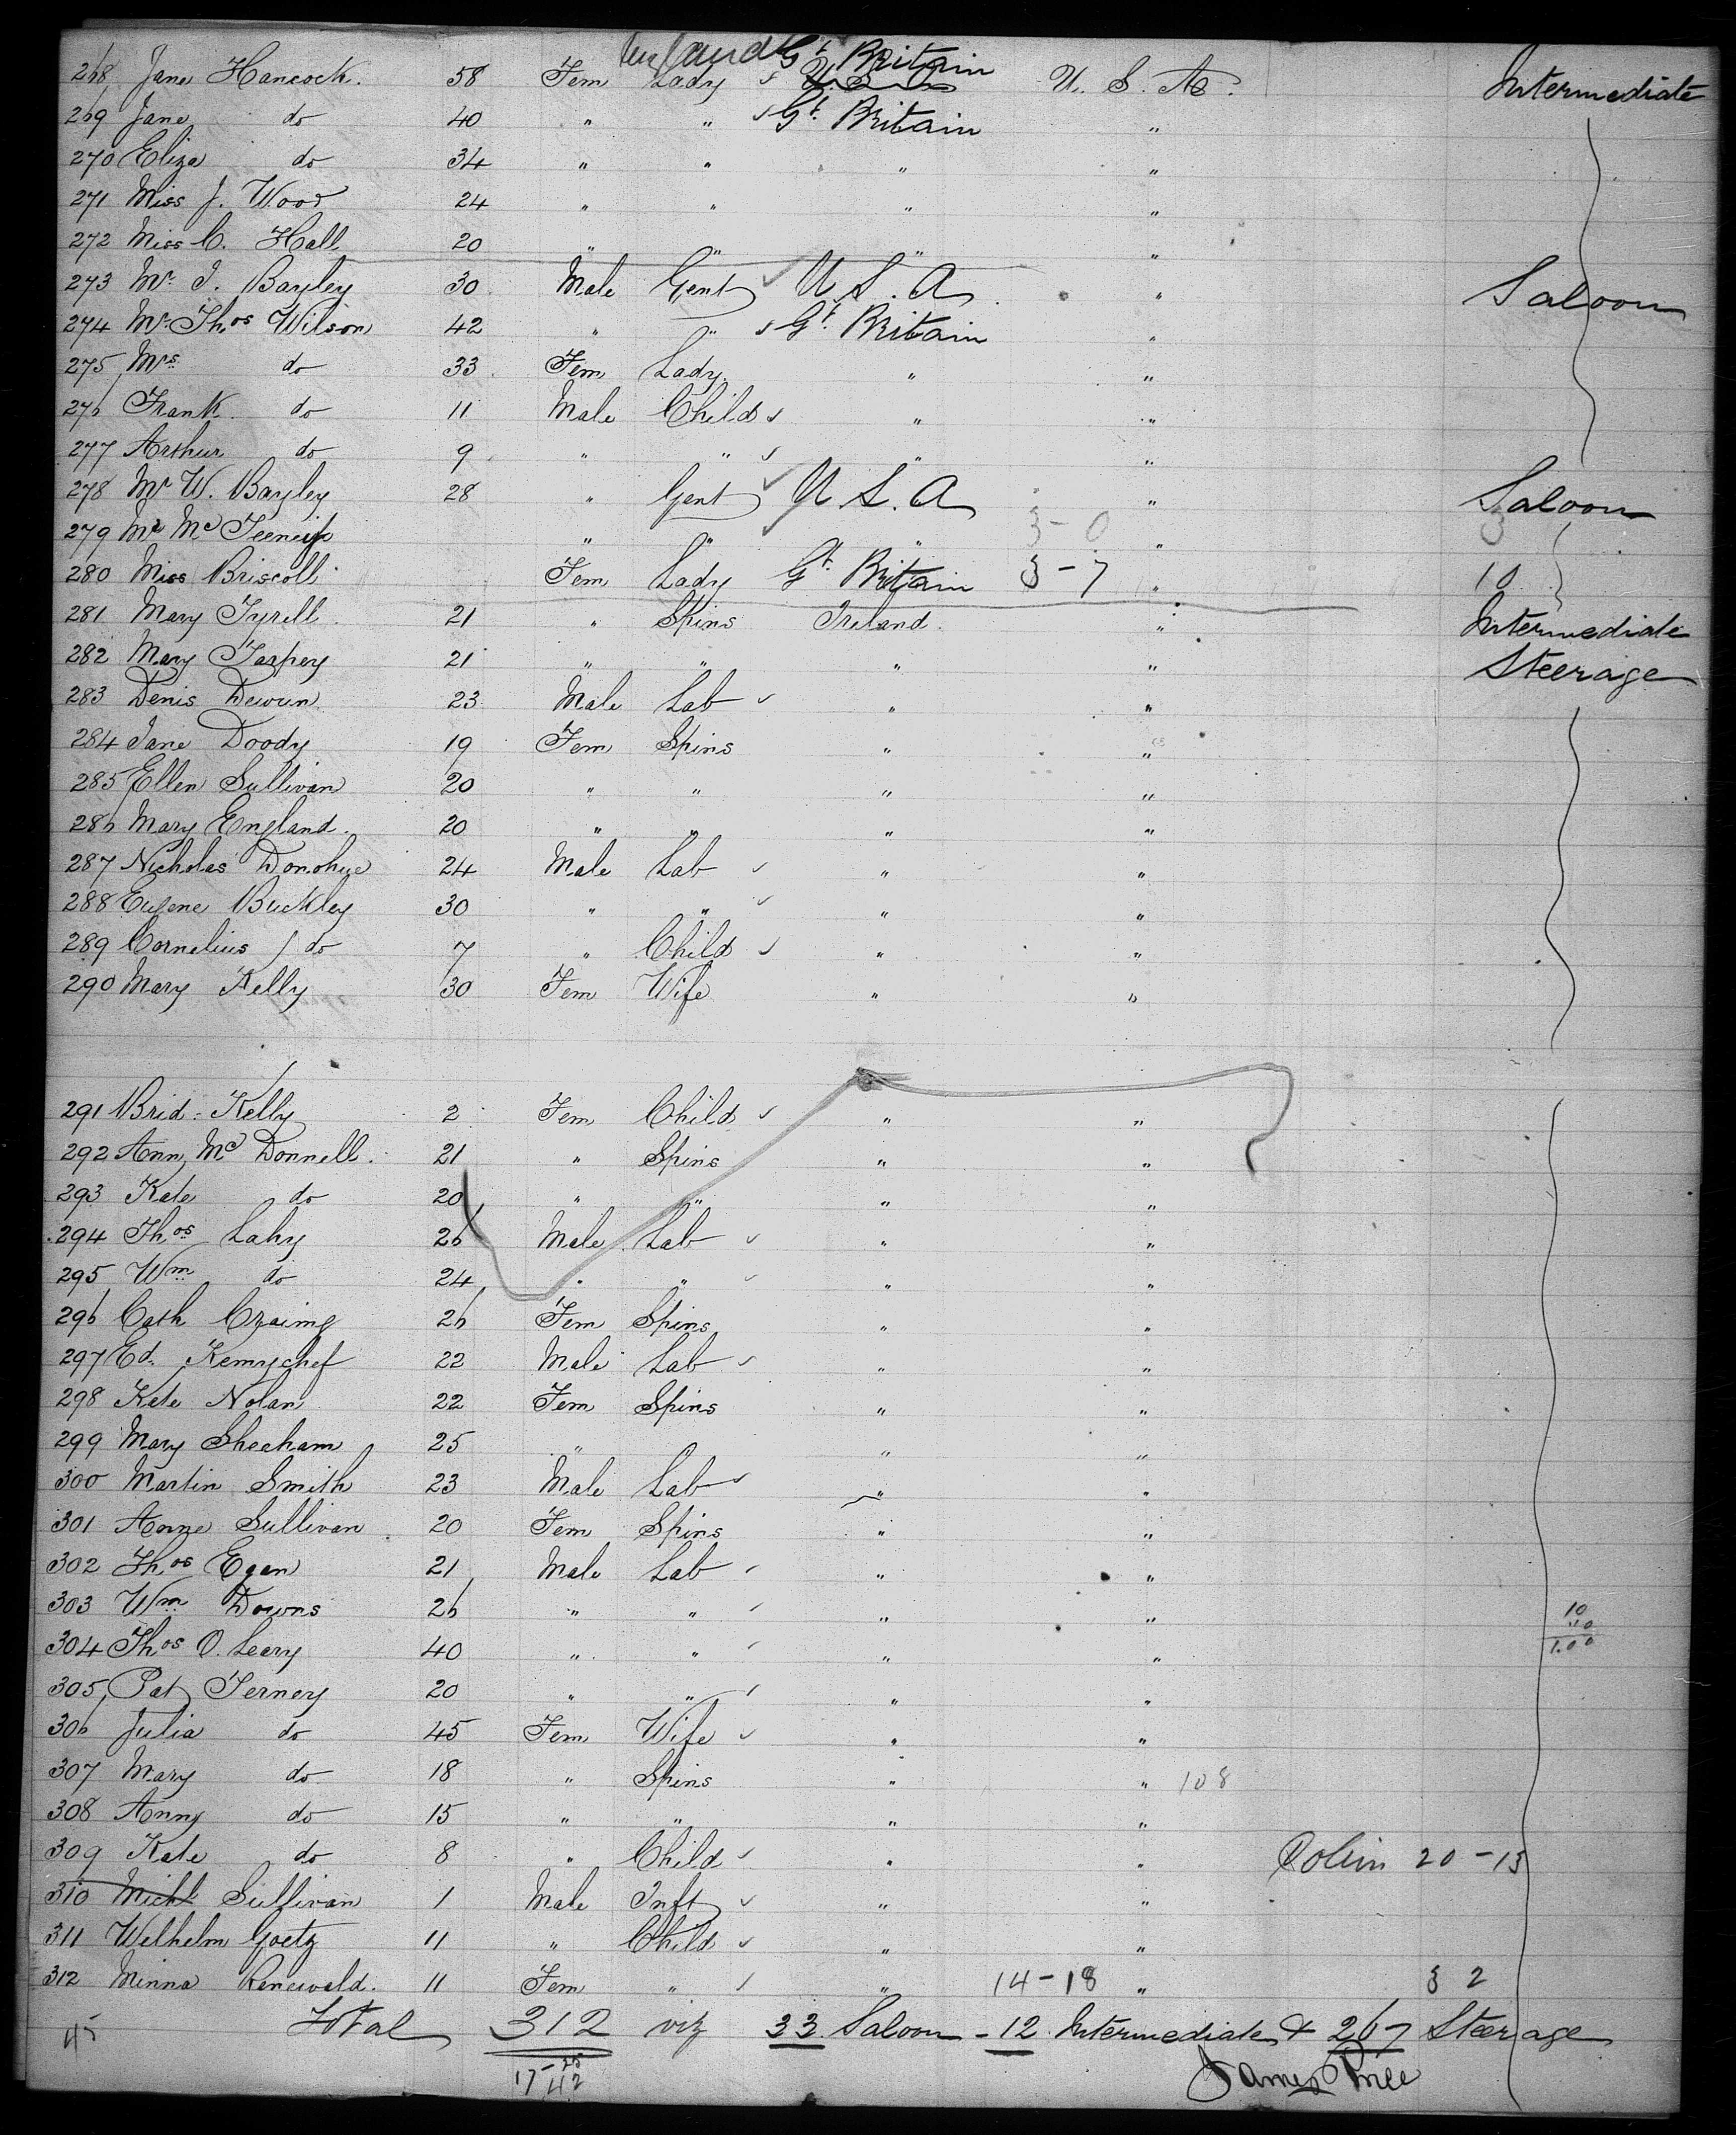 Gt Britain
268 Jane Hancock. 58 Fem Lady U. S. A. U. S. A. Intermediate
269 Jane do 40 " " Gt Britain "
270 Eliza do 34 " " " "
271 Miss J. Wood 24 " " " "
272 Miss C. Hall 20 " " " "
273 Mr. I. Bayley 30 Male Gent U S. A. " Saloon
274 Mr. Thos Wilson 42 " " Gt. Britain "
275 Mrs do 33 Fem Lady " "
276 Frank do 11 Male Child " "
277 Arthur do 9 " " " "
278 Mr W. Bayley 28 " Gent U S. A " Saloon
279 Mr Mc " " " 3-0 " 3
280 Miss Briscoll Fem Lady Gt Britain 3-7 " 10
281 Mary Tyrell 21 " Spins Ireland. " Intermediate
282 Mary Tarpey 21 " " " " Steerage
283 Denis 23 Male Lab " "
284 Jane Doody 19 Fem Spins " "
285 Ellen Sullivan 20 " " " "
286 Mary England. 20 " " " "
287 Nicholas Donohue 24 Male Lab " "
288 Eugene Buckley 30 " " " "
289 Cornelius do 7 " Child " "
290 Mary Kelly 30 Fem Wife " "
291 Brid. Kelly 2 Fem Child " "
292 Ann Mc Donnell. 21 " Spins " "
293 Kate do 20 " " " "
294 Thos Lahy 26 Male Lab " "
295 Wm do 24 " " " "
296 Cath 26 Fem Spins " "
297 Ed. 22 Male Lab " "
298 Kate Nolan 22 Fem Spins " "
299 Mary Sheaham 25 " " "
300 Martin Smith 23 Male Lab " "
301 Sullivan 20 Fem Spins " "
302 Thos Egan 21 Male Lab " "
303 Wm Downs 26 " " " "
304 Thos O. Leary 40 " " " "
305 Pat Terney 20 " " " "
306 Julia do 45 Fem Wife " "
307 Mary do 18 " Spins " " 108
308 Anny do 15 " " " "
309 Kate do 8 " Child " " 20-13
310 Michl Sullivan 1 Male Inft " "
311 Welhelm Goetz 11 " Child " "
312 Minna 11 Fem " " 14-18 " 3 2
45 Total 312 viz 33 Saloon - 12 Intermediate & 267 Steerage
17-25
42
James Price